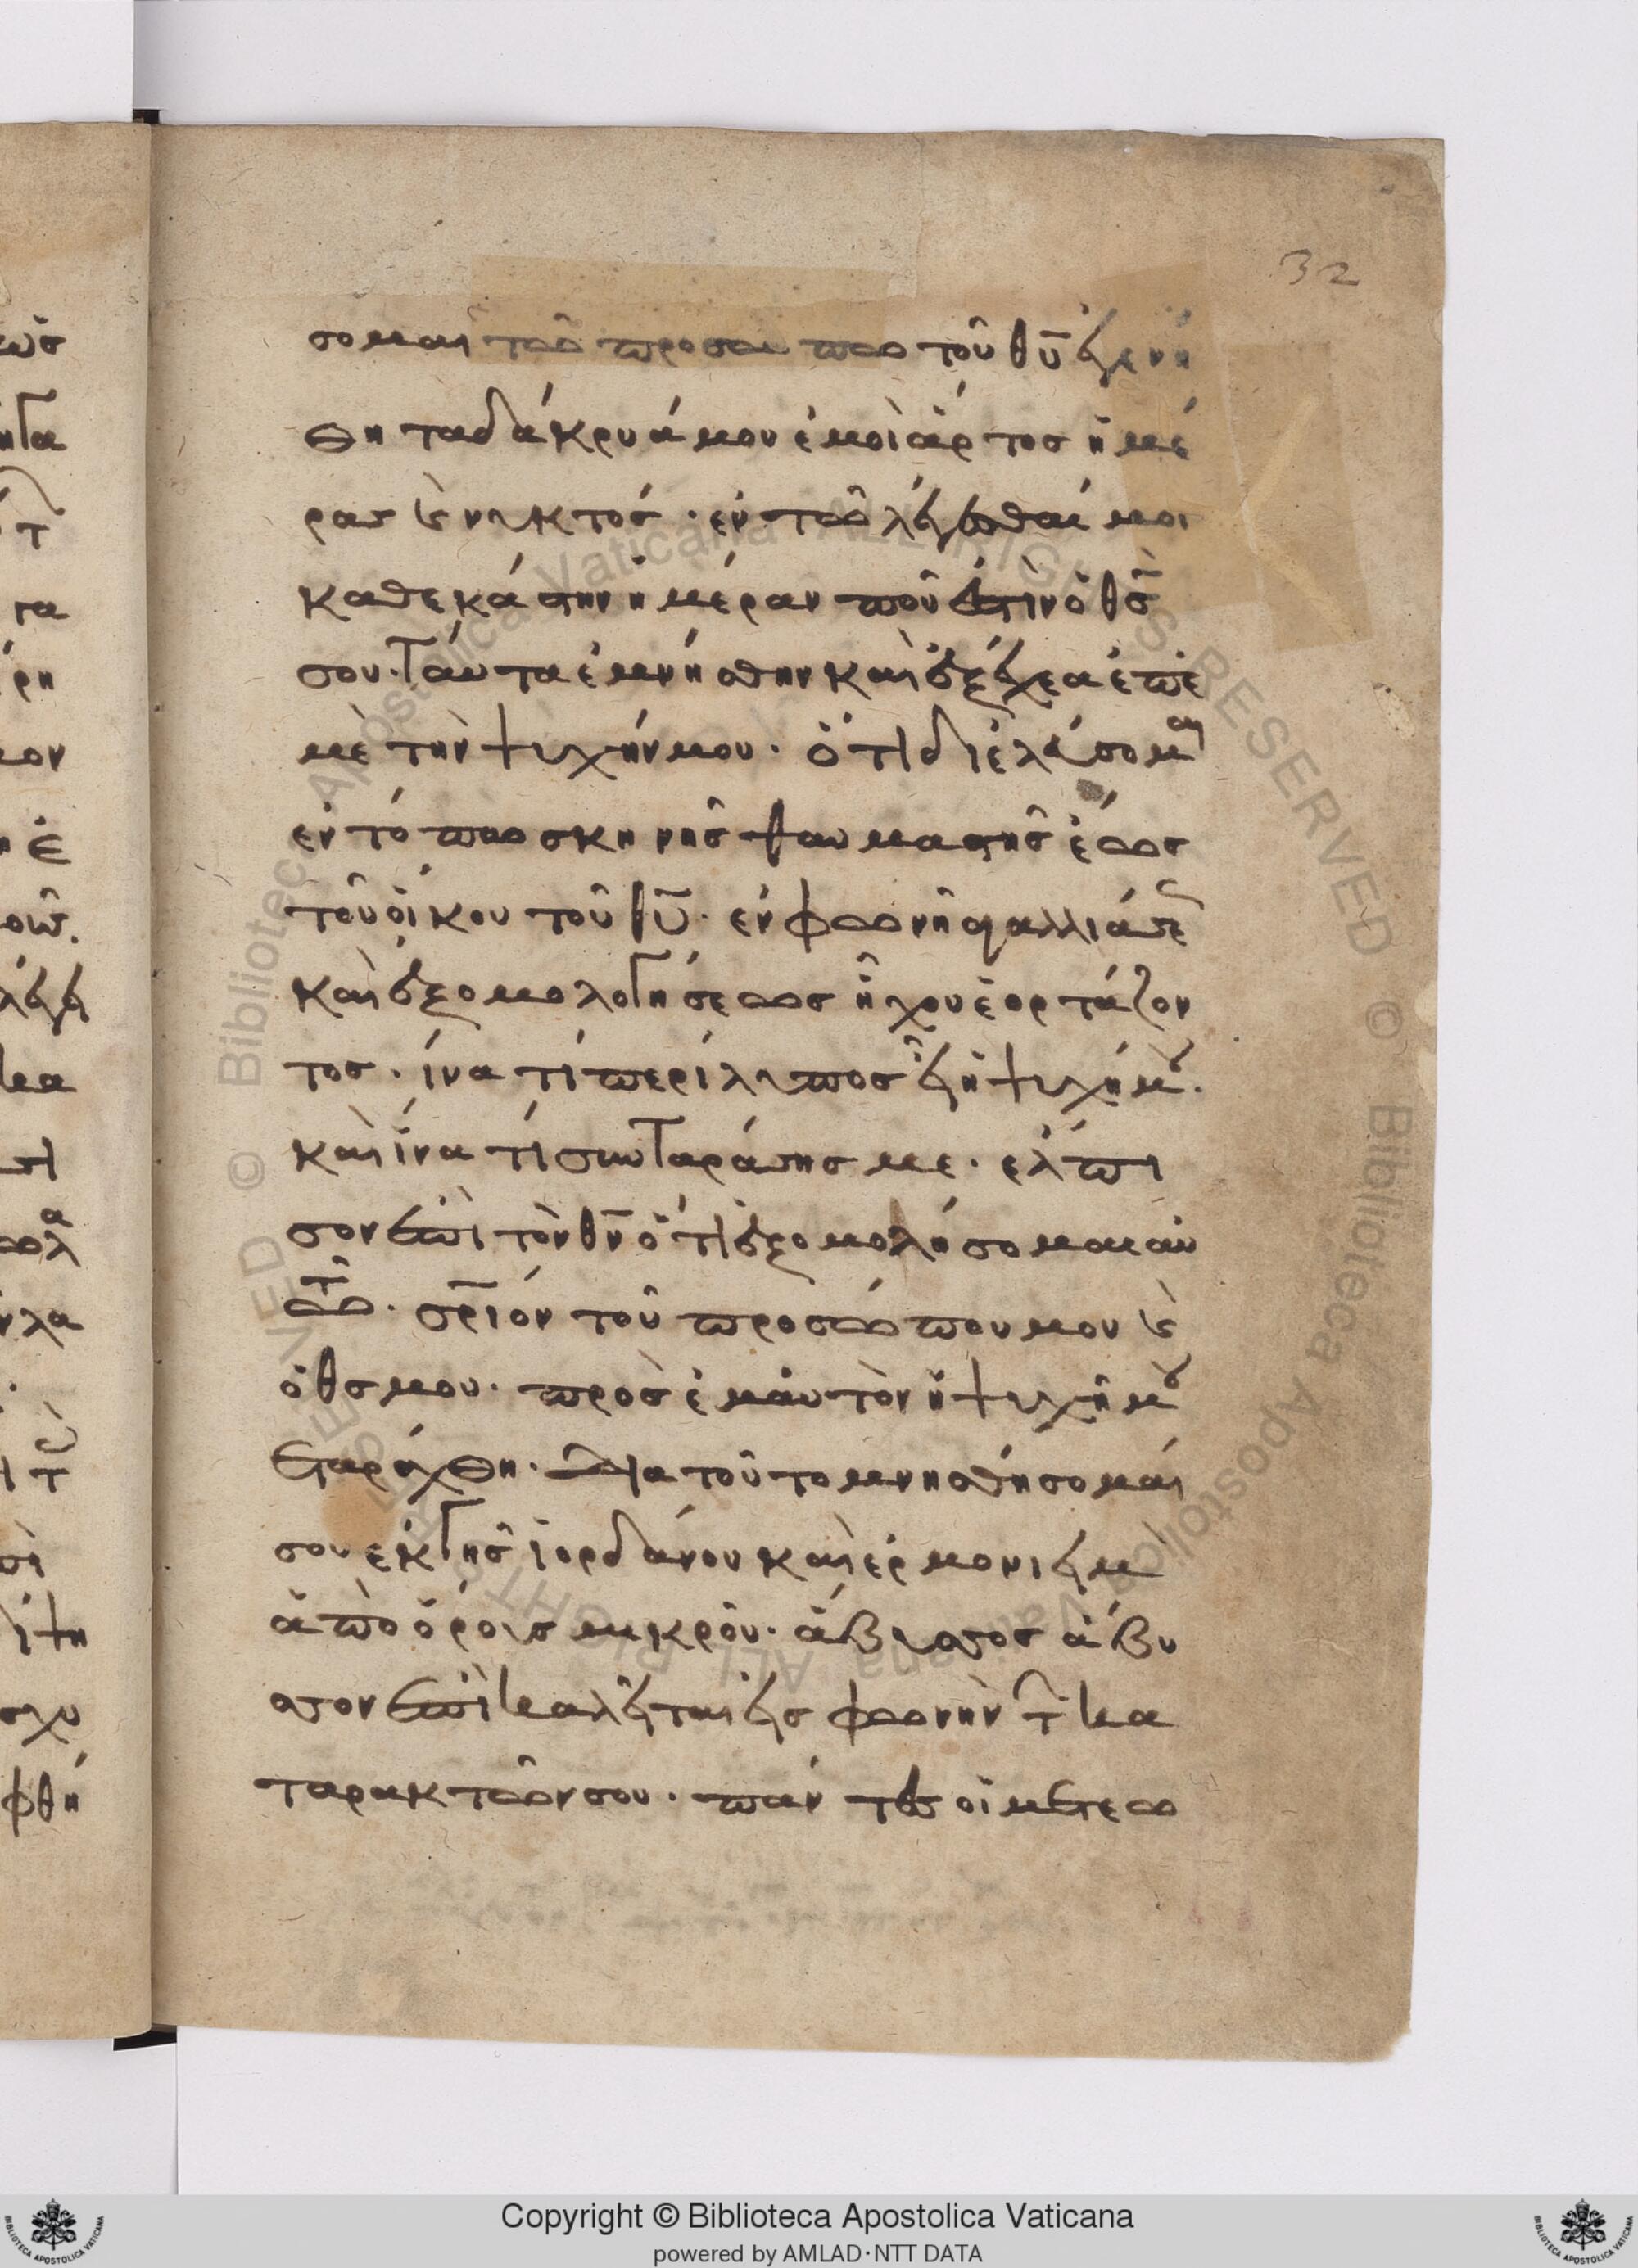 32
σομαι τῶ προσώπω τοῦ θῡ εἰγενή
θη τα δάκρυά μου ἐμοὶ ἄρτος ἡμέ
ρας καὶ νυκτός · ἐν τῶ λέγεσθαί μοι
καθεκάστην ἡμέραν ποῦ ἐστὶν ὁ θς̄
σου · Ταύτα ἐμνήσθην καὶ ἐξέχεα ἐπ' ἐ
μὲ τὴν ψυχήν μου · ὅτι διελεύσομαι
ἐν τόπω σκηνῆς θαυμαστῆς ἕως
τοῦ οἴκου τοῦ θῡ · ἐν φωνῆ ἀγαλλιάσε
καὶ ἐξομολογήσεως ἤχου ἑορτάζον
τος · ἵνα τί περίλυπος εἶ ἡ ψυχή μου ·
καὶ ἵνα τί συνταράσης με · ἔλπι
σον ἐπὶ τὸν θν̄ ὅτι ἐξομολήσομαι αὐ
τῶ · σρ̄ιόν τοῦ προσώπου μου καὶ
ὁ θς μου · πρὸς ἐμαυτὸν ἡ ψυχῆ μου
ἐταράχθη · Δια τοῦτο μνησθήσομαι
σου ἐκ γῆς ἰορδάνου καὶ ἐρμονιεὶμ
ἀπὸ ὄρους μικροῦ · ἄβυσσος ἄβυ
σσον ἐπικαλεῖται εἰς φωνὴν τῶν κα
ταρακτῶν σου · πάντες οἱ μετεω
Copyright © Biblioteca Apostolica Vaticana
powered by AMLAD·NTT DATA